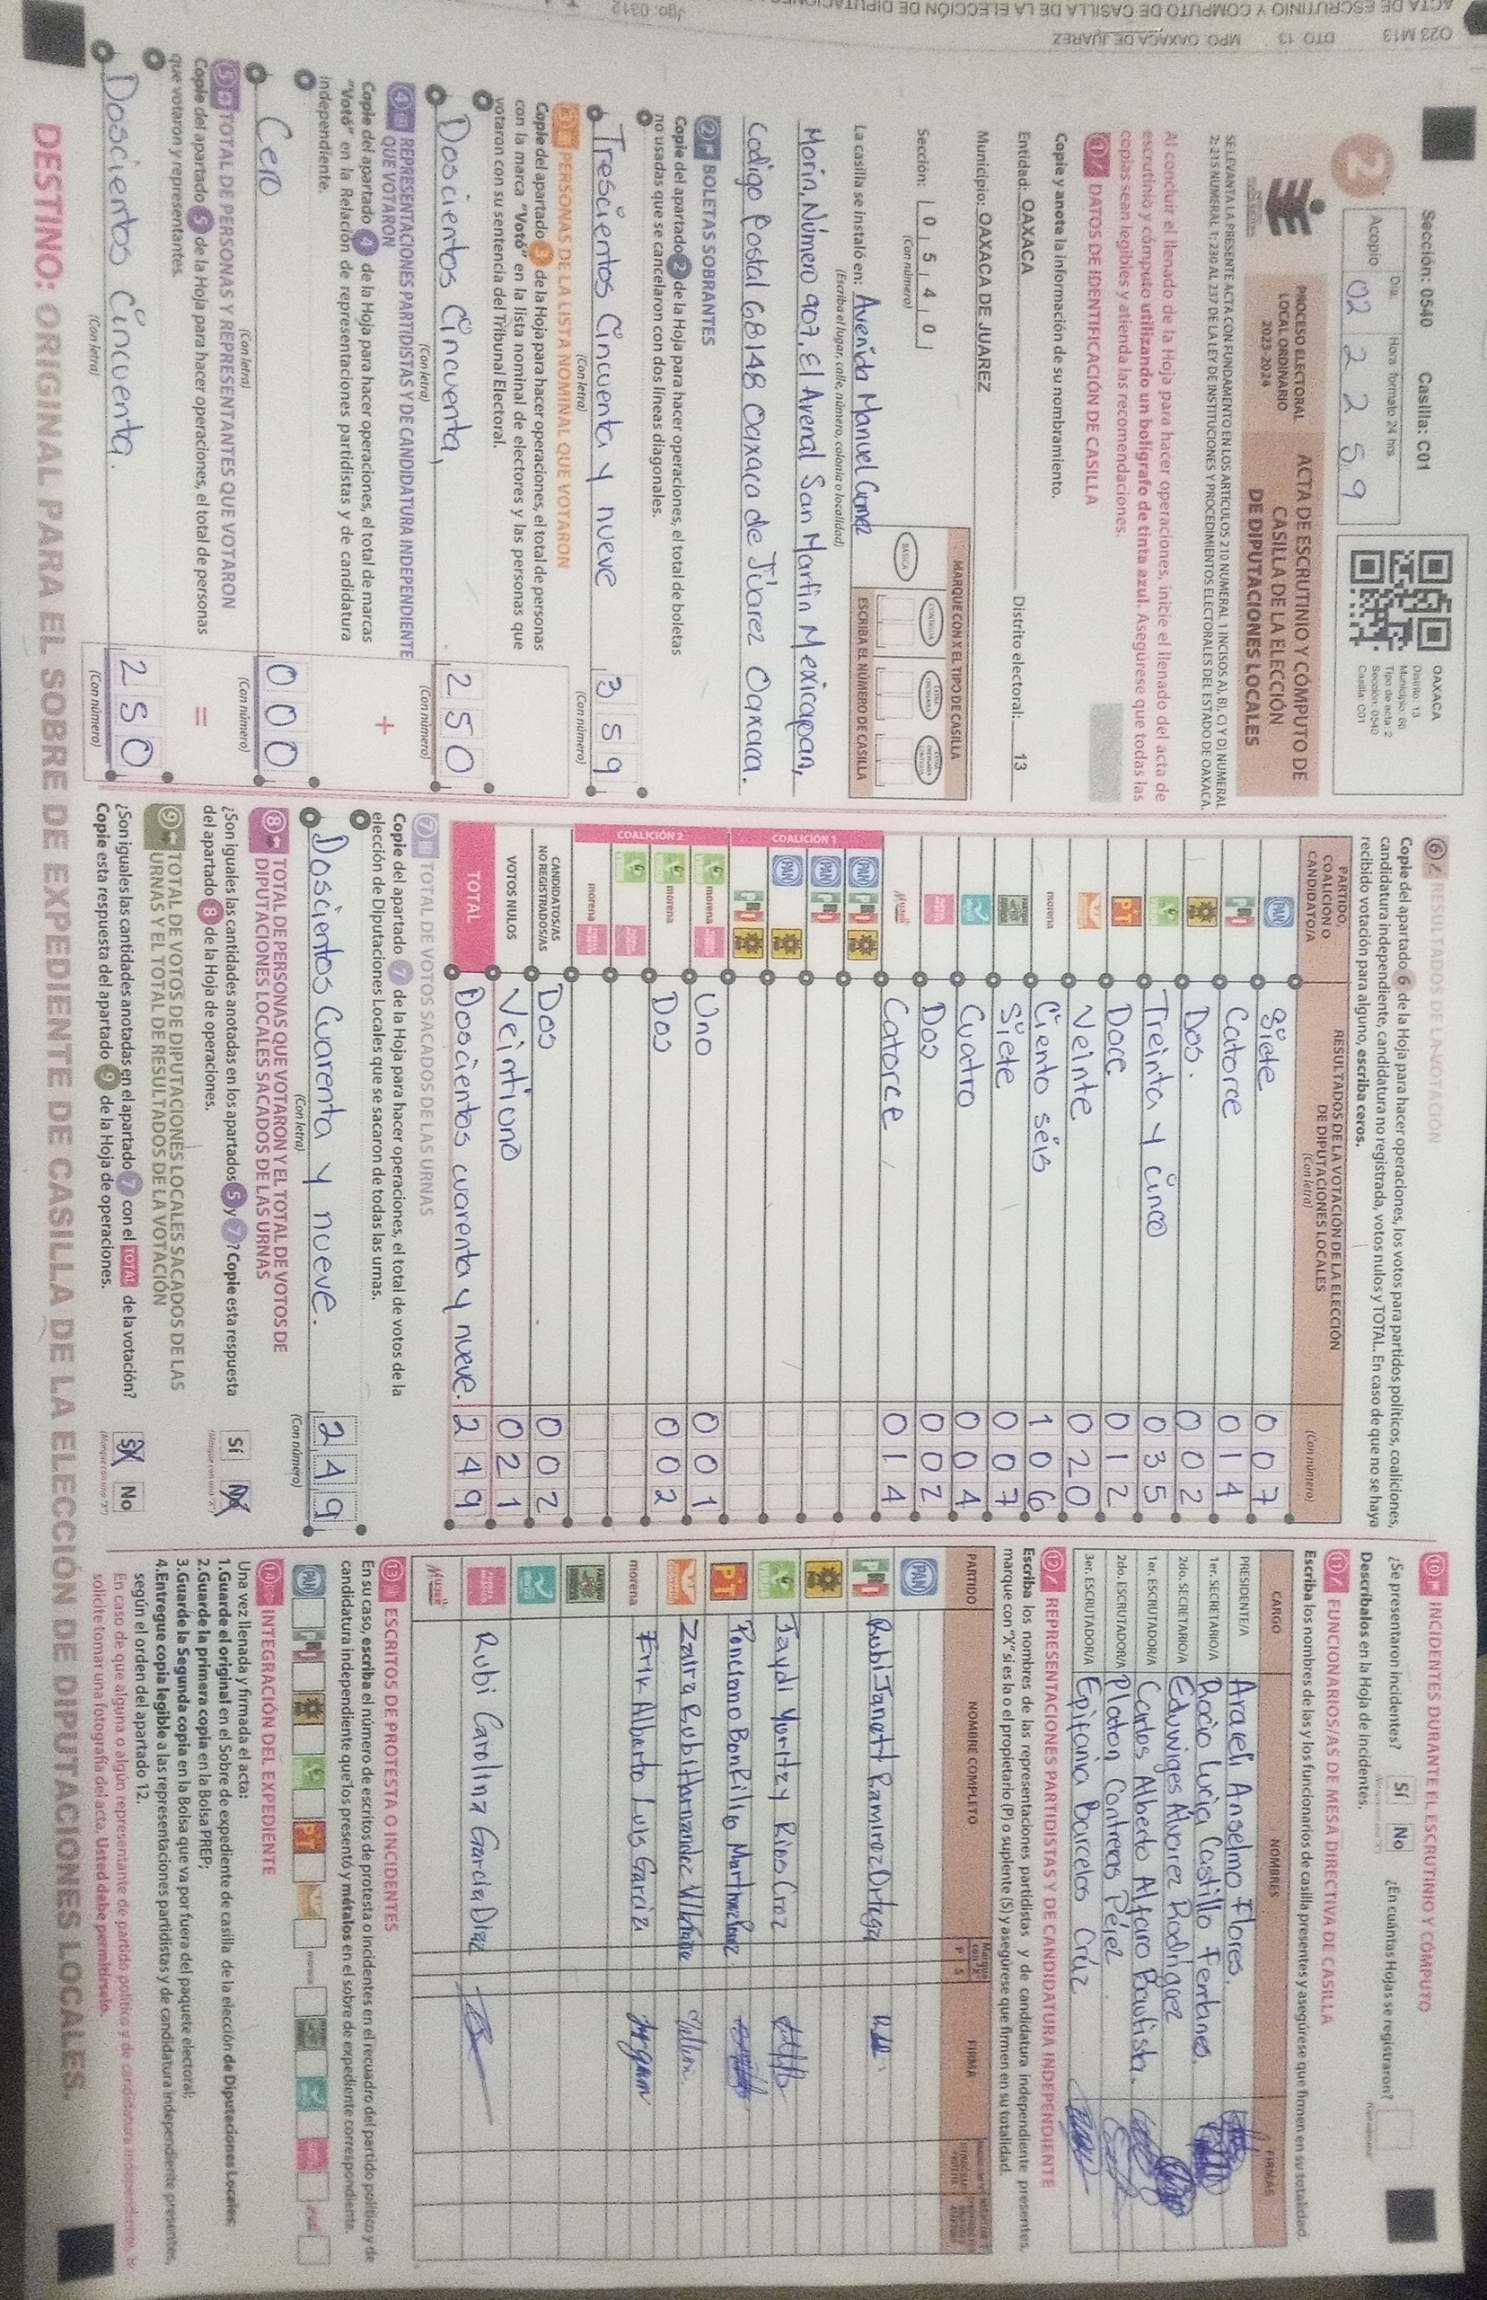 Sección: 0540 Casilla: C01
Día Hora formato 24 hrs.
Acopio 02 22 59
2
OAXACA
Distrito: 13
Municipio: 66
Tipo de acta: 2
Sección: 0540
Casilla: C01
PROCESO ELECTORAL
LOCAL ORDINARIO
2023-2024
ACTA DE ESCRUTINIO Y CÓMPUTO DE
CASILLA DE LA ELECCIÓN
DE DIPUTACIONES LOCALES
SE LEVANTA LA PRESENTE ACTA CON FUNDAMENTO EN LOS ARTÍCULOS 210 NUMERAL 1 INCISOS A), B), C) Y D) NUMERAL
2; 215 NUMERAL 1; 230 AL 237 DE LA LEY DE INSTITUCIONES Y PROCEDIMIENTOS ELECTORALES DEL ESTADO DE OAXACA.
Al concluir el llenado de la Hoja para hacer operaciones, inicie el llenado del acta de
escrutinio y cómputo utilizando un bolígrafo de tinta azul. Asegúrese que todas las
copias sean legibles y atienda las recomendaciones.
1 DATOS DE IDENTIFICACIÓN DE CASILLA
Copie y anote la información de su nombramiento.
Entidad: OAXACA Distrito electoral: 13
Municipio: OAXACA DE JUAREZ
Sección: 0 5 4 0
(Con número)
MARQUE CON X EL TIPO DE CASILLA
BÁSICA CONTIGUA
ESCRIBA EL NÚMERO DE CASILLA
La casilla se instaló en: Avenida Manuel Gomez
(Escriba el lugar, calle, número, colonia o localidad)
Morin, Número 907, El Arenal San Martin Mexicapan,
Codigo Postal 68148 Oaxaca de Júarez Oaxaca.
2 BOLETAS SOBRANTES
Copie del apartado 2 de la Hoja para hacer operaciones, el total de boletas
no usadas que se cancelaron con dos líneas diagonales.
Trescientos Cincuenta y nueve 359
(Con letra) (Con número)
3 PERSONAS DE LA LISTA NOMINAL QUE VOTARON
Copie del apartado 3 de la Hoja para hacer operaciones, el total de personas
con la marca "Votó" en la lista nominal de electores y las personas que
votaron con su sentencia del Tribunal Electoral.
Doscientos Cincuenta, 250
(Con letra) (Con número)
4 REPRESENTACIONES PARTIDISTAS Y DE CANDIDATURA INDEPENDIENTE
QUE VOTARON
Copie del apartado 4 de la Hoja para hacer operaciones, el total de marcas
"Votó" en la Relación de representaciones partidistas y de candidatura
independiente.
+
Cero 000
(Con letra) (Con número)
5 TOTAL DE PERSONAS Y REPRESENTANTES QUE VOTARON
Copie del apartado 5 de la Hoja para hacer operaciones, el total de personas
que votaron y representantes.
=
Doscientos Cincuenta. 250
(Con letra) (Con número)
6 RESULTADOS DE LA VOTACIÓN
Copie del apartado 6 de la Hoja para hacer operaciones, los votos para partidos políticos, coaliciones,
candidatura independiente, candidatura no registrada, votos nulos y TOTAL. En caso de que no se haya
recibido votación para alguno, escriba ceros.
PARTIDO,
COALICIÓN O
CANDIDATO/A
RESULTADOS DE LA VOTACIÓN DE LA ELECCIÓN
DE DIPUTACIONES LOCALES
(Con letra) (Con número)
PAN Siete 007
PRI Catorce 014
PRD Dos. 002
Treinta y cinco 035
PT Doce 012
Veinte. 020
morena Ciento séis 106
Siete 007
Cuatro 004
Dos 002
Mujer Catorce 014
COALICIÓN 1
PAN PRI PRD
PAN PRI
PAN PRD
PRI PRD
COALICIÓN 2
morena Uno 001
morena Dos 002
morena
CANDIDATOS/AS
NO REGISTRADOS/AS Dos 002
VOTOS NULOS Veintiuno 021
TOTAL Doscientos cuarenta y nueve. 249
7 TOTAL DE VOTOS SACADOS DE LAS URNAS
Copie del apartado 7 de la Hoja para hacer operaciones, el total de votos de la
elección de Diputaciones Locales que se sacaron de todas las urnas.
Doscientos Cuarenta y nueve. 249
(Con letra) (Con número)
8 TOTAL DE PERSONAS QUE VOTARON Y EL TOTAL DE VOTOS DE
DIPUTACIONES LOCALES SACADOS DE LAS URNAS
¿Son iguales las cantidades anotadas en los apartados 5 y 7? Copie esta respuesta
del apartado 8 de la Hoja de operaciones.
Sí No
9 TOTAL DE VOTOS DE DIPUTACIONES LOCALES SACADOS DE LAS
URNAS Y EL TOTAL DE RESULTADOS DE LA VOTACIÓN
¿Son iguales las cantidades anotadas en el apartado 7 con el TOTAL de la votación?
Copie esta respuesta del apartado 9 de la Hoja de operaciones.
Sí No
10 INCIDENTES DURANTE EL ESCRUTINIO Y CÓMPUTO
¿Se presentaron incidentes? Sí No ¿En cuántas Hojas se registraron?
Descríbalos en la Hoja de incidentes.
11 FUNCIONARIOS/AS DE MESA DIRECTIVA DE CASILLA
Escriba los nombres de las y los funcionarios de casilla presentes y asegúrese que firmen en su totalidad.
CARGO NOMBRES FIRMAS
PRESIDENTE/A Araceli Anselmo Flores.
1er. SECRETARIO/A Rocio Lucia Castillo Ferlanes.
2do. SECRETARIO/A Eduviges Alvarez Rodriguez
1er. ESCRUTADOR/A Carlos Alberto Alfaro Bautista.
2do. ESCRUTADOR/A Platon Contreras Pérez.
3er. ESCRUTADOR/A Epifania Barcelos Crúz
12 REPRESENTACIONES PARTIDISTAS Y DE CANDIDATURA INDEPENDIENTE
Escriba los nombres de las representaciones partidistas y de candidatura independiente presentes,
marque con "X" si es la o el propietario (P) o suplente (S) y asegúrese que firmen en su totalidad.
PARTIDO NOMBRE COMPLETO P S FIRMA
PAN
PRI Rubi Janett Ramirez Ortega
PRD
Jaydi Yuritzy Rios Cruz
PT Ponciano Bonfilio Martinez
Zaira Rubi Hernandez
morena Erik Alberto Luis Garcia
Rubi Carolina Garcia Diaz
Mujer
13 ESCRITOS DE PROTESTA O INCIDENTES
En su caso, escriba el número de escritos de protesta o incidentes en el recuadro del partido político y de
candidatura independiente que los presentó y métalos en el sobre de expediente correspondiente.
PAN PRI PRD PT morena
14 INTEGRACIÓN DEL EXPEDIENTE
Una vez llenada y firmada el acta:
1.Guarde el original en el Sobre de expediente de casilla de la elección de Diputaciones Locales;
2.Guarde la primera copia en la Bolsa PREP;
3.Guarde la Segunda copia en la Bolsa que va por fuera del paquete electoral;
4.Entregue copia legible a las representaciones partidistas y de candidatura independiente presentes,
según el orden del apartado 12.
En caso de que alguna o algún representante de partido político y de candidatura independiente, le
solicite tomar una fotografía del acta. Usted debe permitírselo.
DESTINO: ORIGINAL PARA EL SOBRE DE EXPEDIENTE DE CASILLA DE LA ELECCIÓN DE DIPUTACIONES LOCALES.
O23 M13 DTO 13 MPO. OAXACA DE JUAREZ
ACTA DE ESCRUTINIO Y COMPUTO DE CASILLA DE LA ELECCIÓN DE
Jgo: 0312